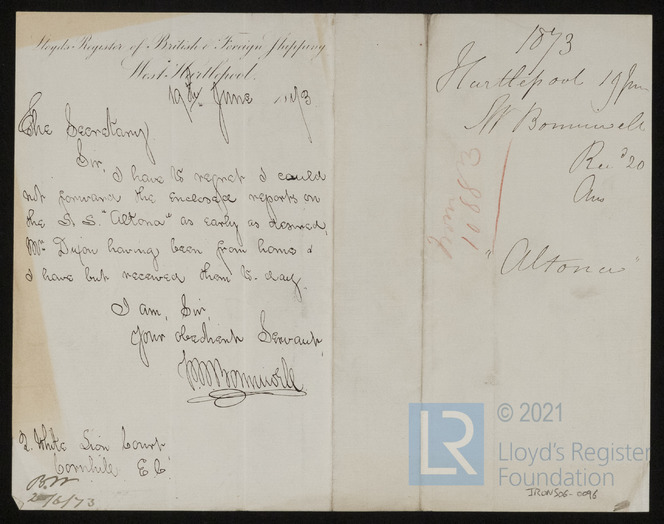 Lloyds Register of British & Foreign Shipping
West Hartlepool.
19th June 1873
The Secretary
Sir,
I have to regret I could
not forward the enclosed reports on
the S.S. "Altona" as early as desired,
Mr Dixon having been from home &
I have but received them to-day.
I am, Sir,
Your obedient Servant,
2. White Lion Court
Cornhill E.C.
20/6/73
1873
Hartlepool 19 Jun
Mr
Rec.d 20
Ans
"Altona"
Iron
© 2021
LR
Lloyd's Register
Foundation
IRON506-0096